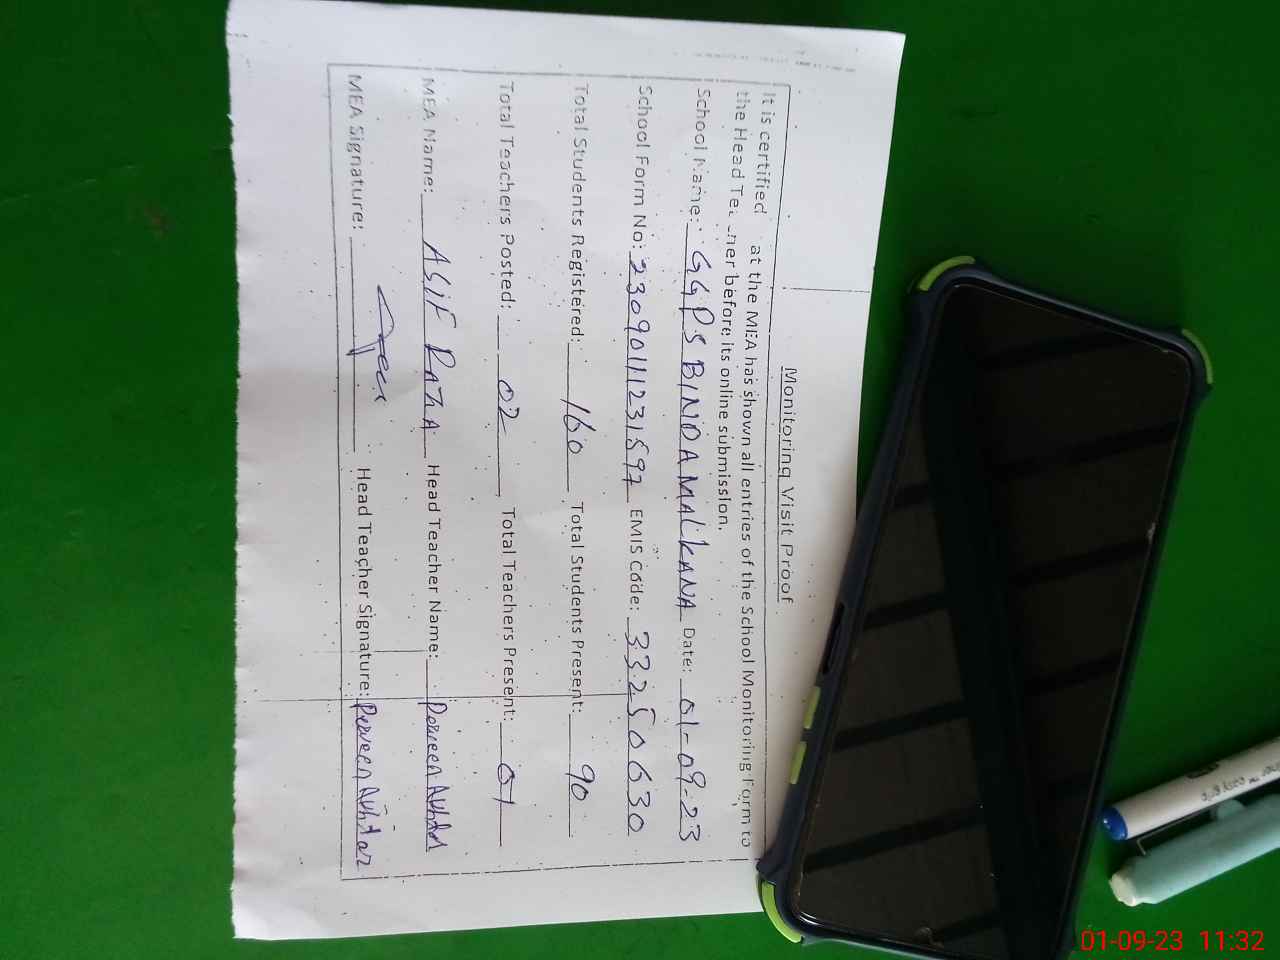 Monitoring Visit Proof
It is certified at the MEA has shown all entries of the School Monitoring Form to
the Head Tea ner before its online submission.
School Name: GGPS BINDA MALIKANA Date: 01-09-23
School Form No: 2309011231597 EMIS code: 33250630
Total Students Registered: 160 Total Students Present: 90
Total Teachers Posted: 02 Total Teachers Present: 01
MEA Name: ASIF RAZA Head Teacher Name: Perveen Akhtar
MEA Signature: Head Teacher Signature: Perveen Akhtar
01-09-23 11:32